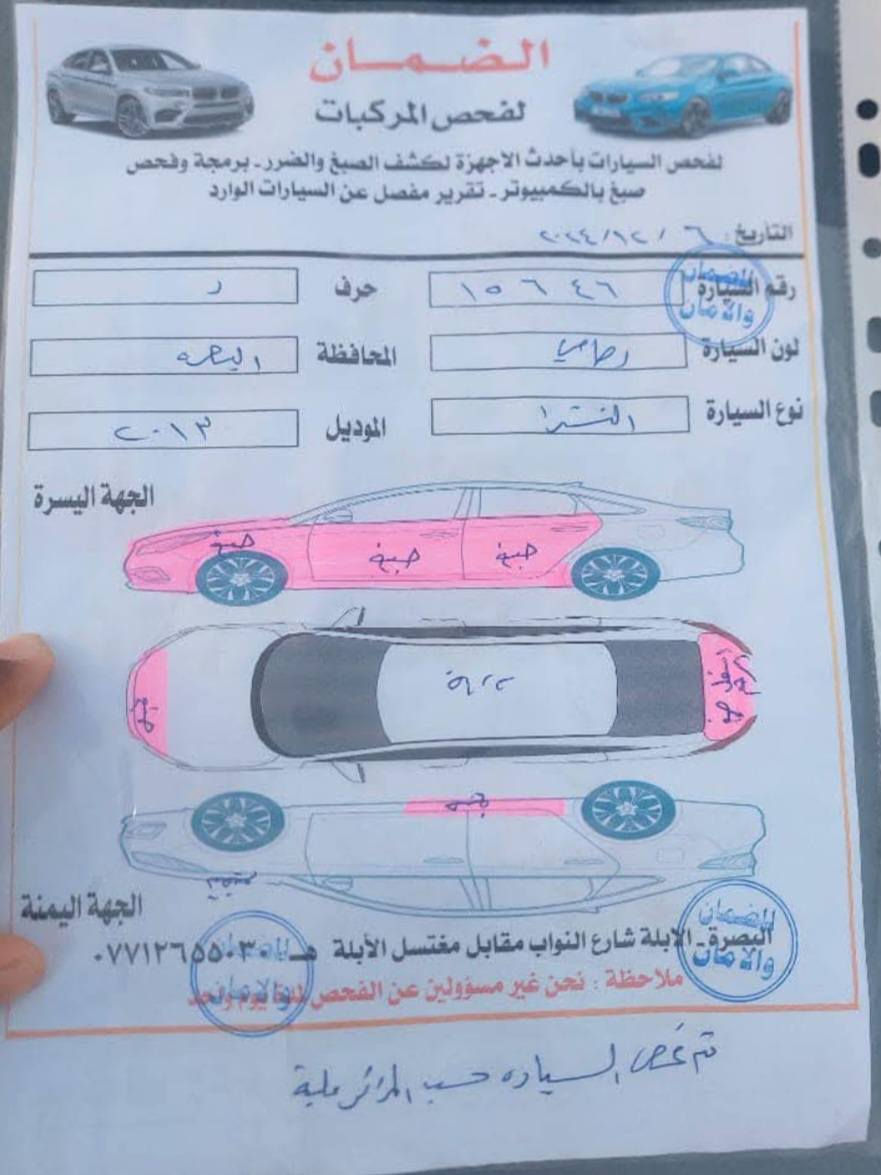 الضمان
لفحص المركبات
لفحص السيارات بأحدث الاجهزة لكشف الصبغ والضرر - برمجة وفحص
صبغ بالكمبيوتر - تقرير مفصل عن السيارات الوارد
التأريخ: ٦ / ١٢ / ٢٠٢٤
رقم السيارة ١٥٦٤٦ حرف ر
لون السيارة رصاصي المحافظة البصره
نوع السيارة النترا الموديل ٢٠١٣
الجهة اليسرة
صبغ صبغ صبغ
صبغ
صبغ
الجهة اليمنة
البصرة - الابلة شارع النواب مقابل مغتسل الأبلة هـ ٠٧٧١٢٦٥٥٠٣٠
ملاحظة : نحن غير مسؤولين عن الفحص لمدة يوم واحد
الضمان والامان
الضمان والامان
الضمان والامان
تم فحص السياره حسب